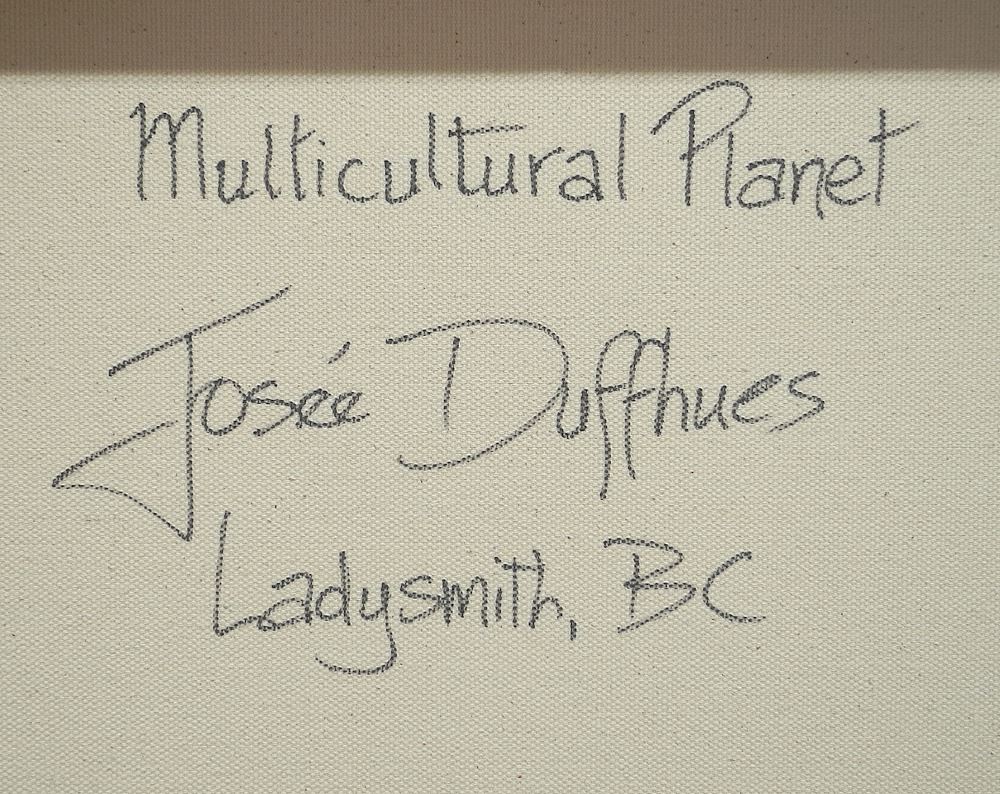 Multicultural Planet
Josée Duffhues
Ladysmith, BC